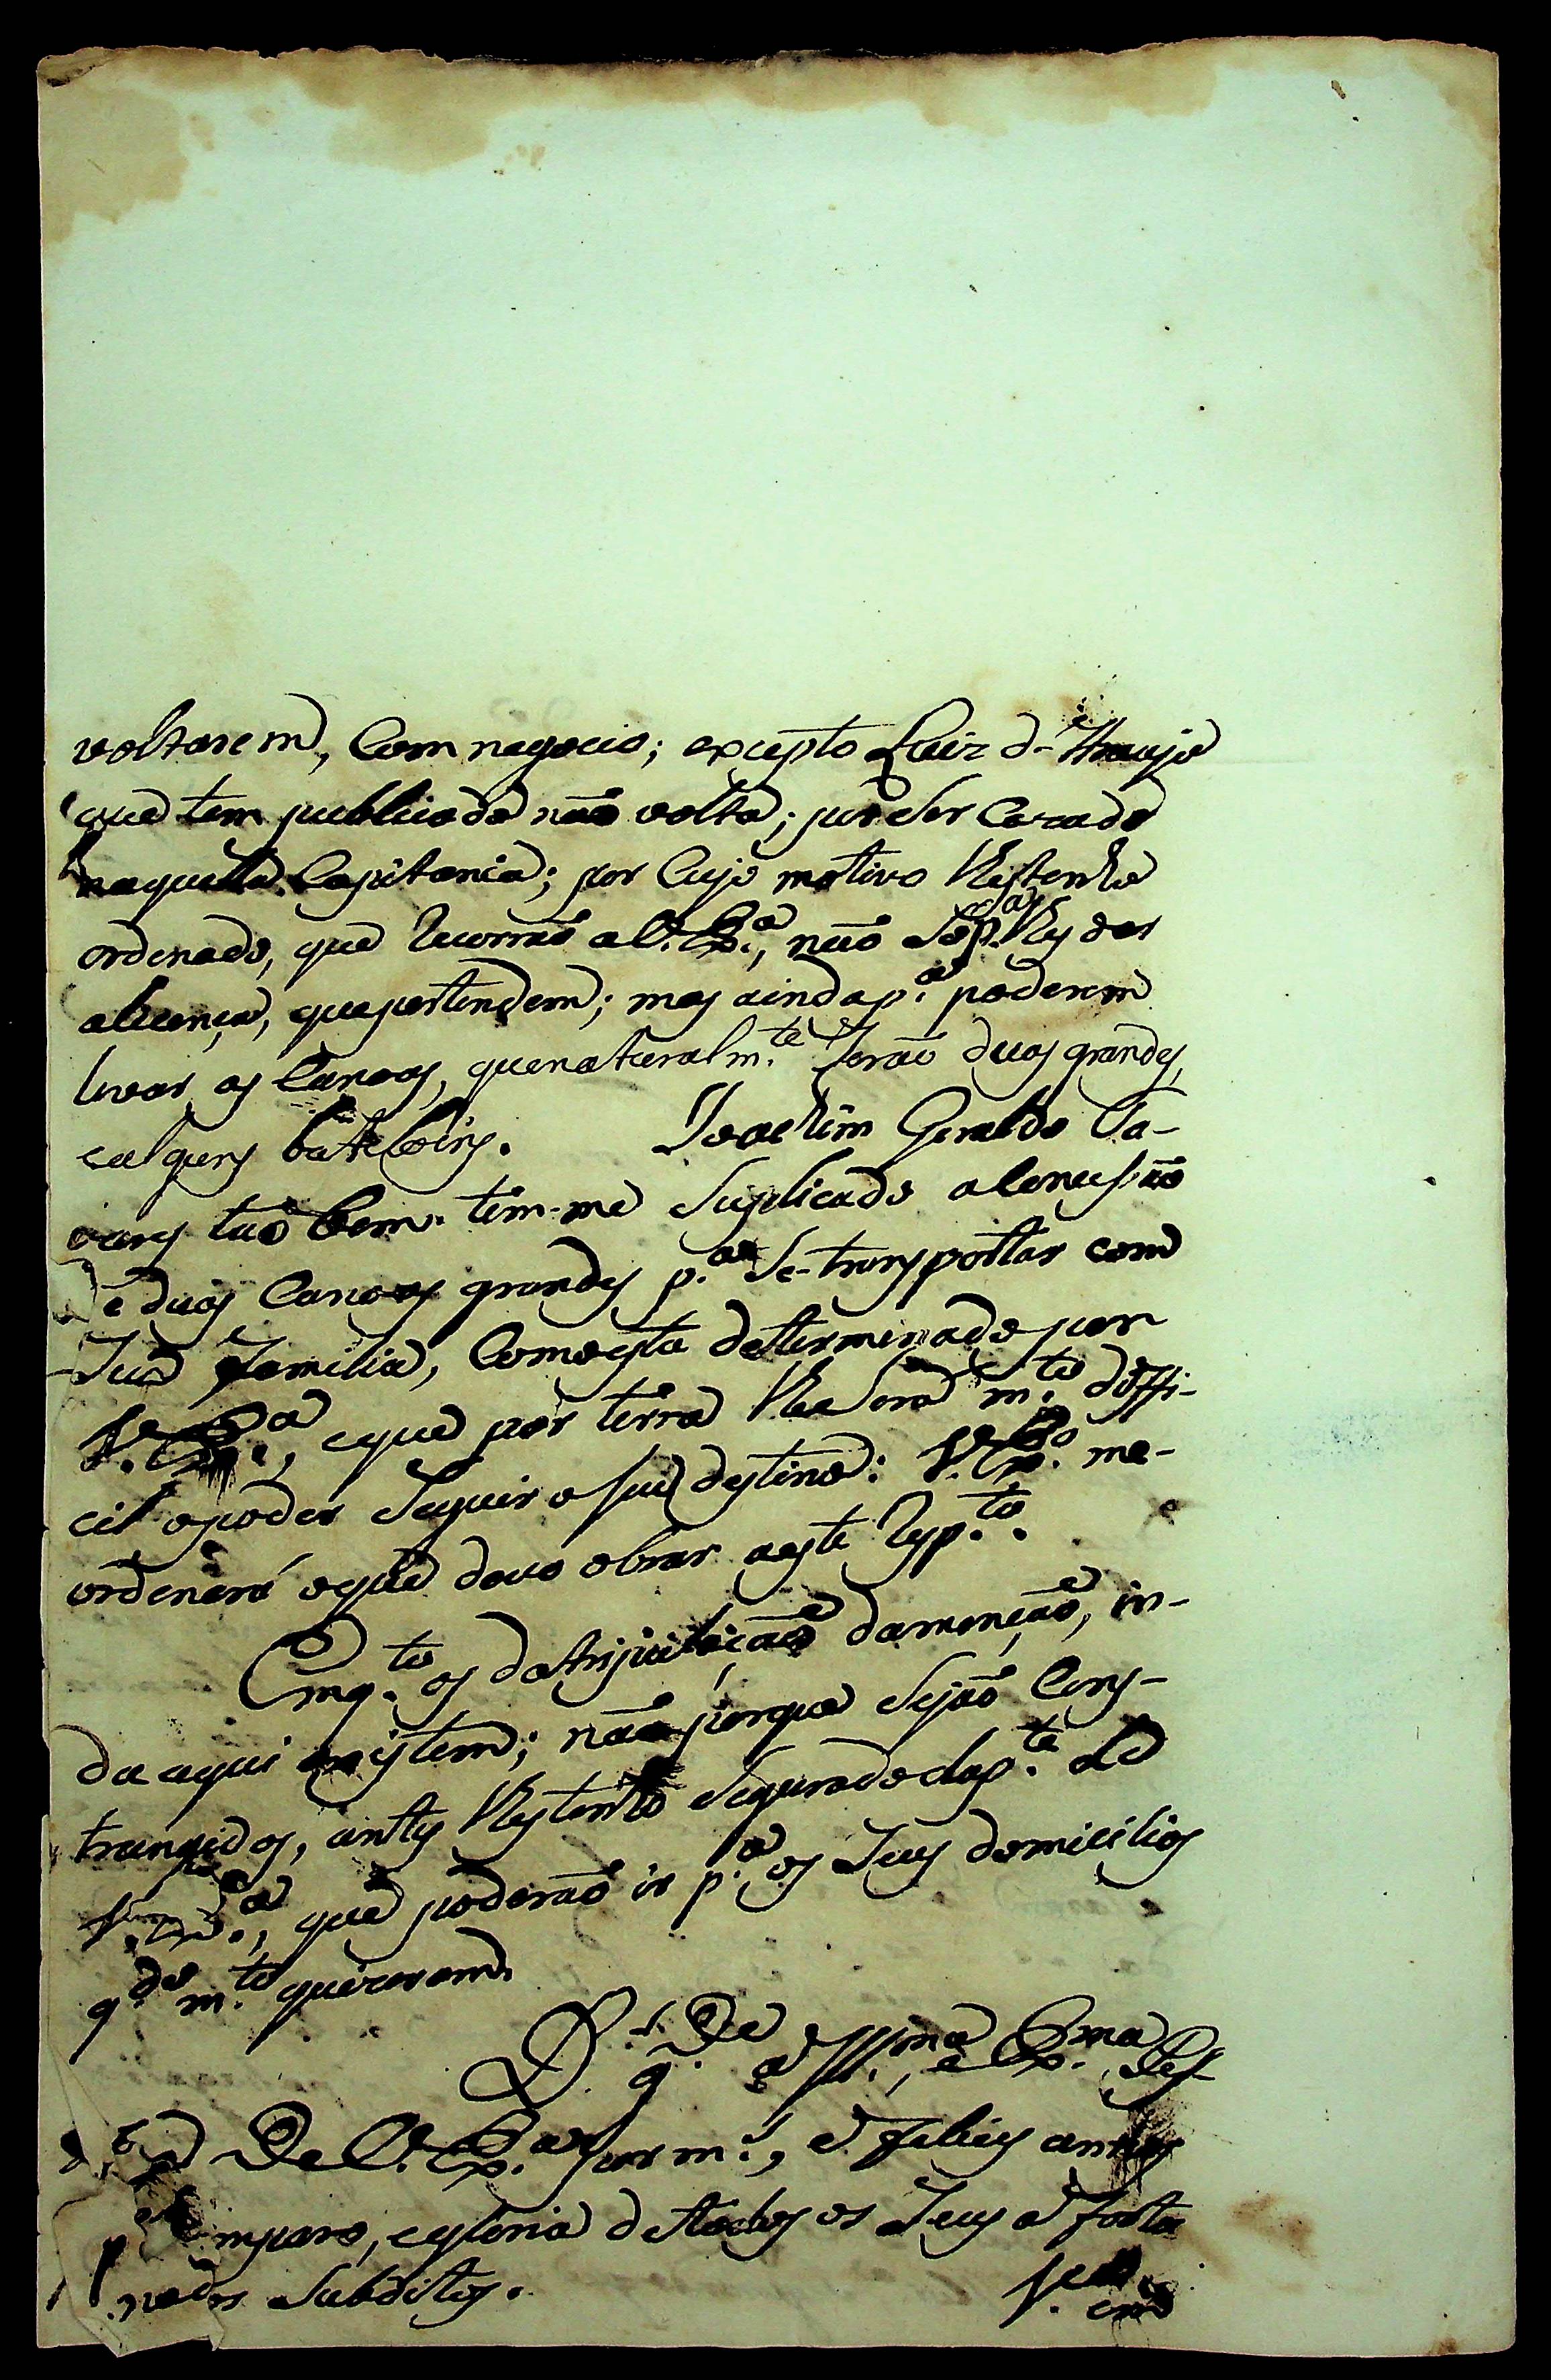 voltarem, Com negocio; excepto Luiz d-Araujo
que tem publicado não volta; por ser Cazado
naquella Capitania; por Cujo motivo lhestenho
ordenado, que recorrão a V. Ex.ª, não só p.ª lhes dar
alicença, que pertendem; mas ainda p.ª poderem
levar as Canoas, que naturalm.te Serão duas grandes,
e alguns bateloins. Joachim Geraldo Ta-
vares tão bem. tem-me Suplicado a Concessão
de duas Canoas grandes p.ª Se-transportar com
Sua Familia, Como esta determinado por
V. Ex.ª, e que por terra lhe Será m.to diffi-
cil o poder Seguir o seu destino: V. Ex.ª me-
ordenará o que devo obrar a este resp.to.
Emq.to os da tripulação da monção, in-
da aqui existem; não porque Sejão Cons-
trangidos, antes lhes tenho Segurado da p.te de
V. Ex.ª, que poderão ir p.ª os Seus domicilios
q.do m.to quizerem.
D.s g.de a Ill.ma, e Ex.ma Pes-
soa De V. Ex.ª por m.s, e felices annos
p.ª amparo, e gloria de todos os Seus a fortu
nados Subditos.